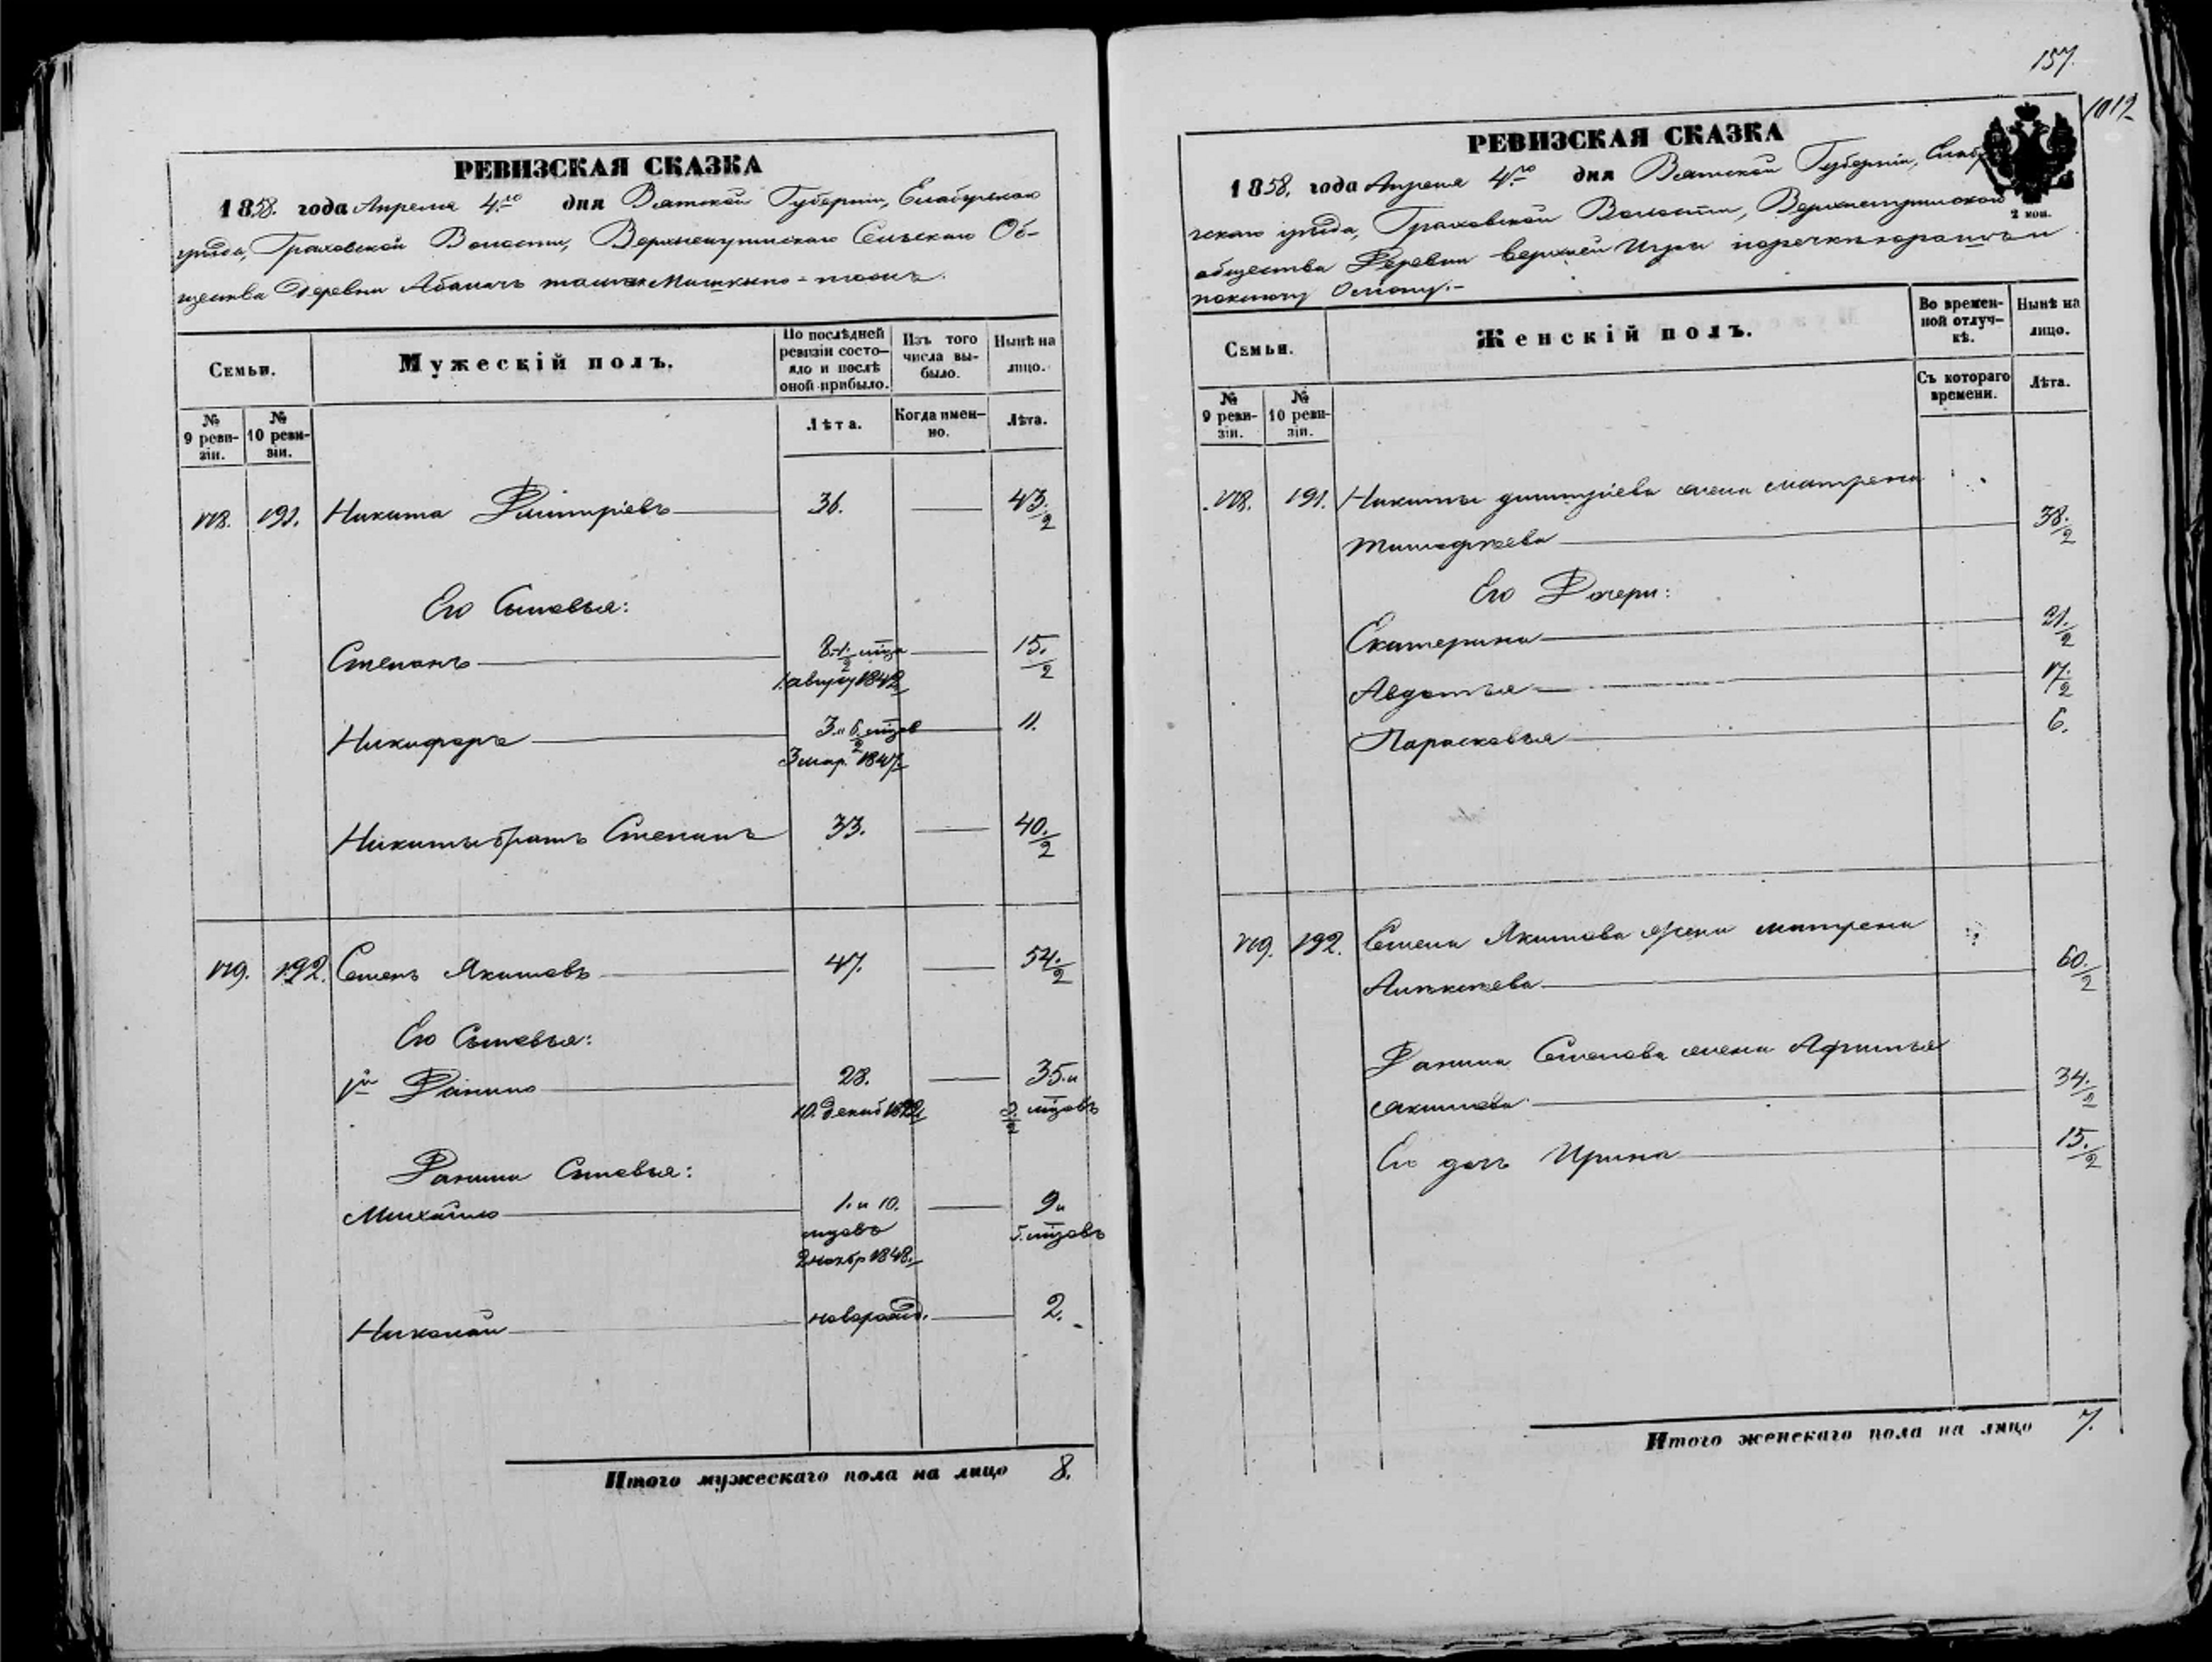 РЕВИЗСКАЯ СКАЗКА
1858. года Апреля 4.го дня Вятской Губерніи, Елабужскаго
уѣзда, Граховской Волости, Верхнеигринскаго Сельскаго Об-
щества Деревни
Семьи.
Мужескій полъ.
По послѣдней ревизіи состояло и послѣ оной прибыло.
Изъ того числа выбыло.
Нынѣ на лицо.
№ 9 ревизіи.
№ 10 ревизіи.
Лѣта.
Когда именно.
Лѣта.
178. 191. Никита Дмитріевъ 36. 43./2
Его Сыновья:
Степанъ 15./2
1. август 1842
Никифоръ 11.
3 мар. 1847.
Никиты братъ Степанъ 33. 40./2
179. 192. Семенъ Якимовъ 47. 54./2
Его Сыновья:
1й Данило 28. 35. и
10. декаб мцовъ
Данилы Сыновья:
Михайло 1. и 10. 9 и
мцовъ 5. мцовъ
2 ноябр 1848.
Николай новорожд. 2.
Итого мужескаго пола на лицо 8.
157.
1012
РЕВИЗСКАЯ СКАЗКА
2 коп.
1858. года Апреля 4.го дня Вятской Губерніи, Елабу
жскаго уѣзда, Граховской Волости, Верхнеигринскаго
общества Деревни Верхней Игры поречкѣ
Семьи.
Женскій полъ.
Во временной отлучкѣ.
Нынѣ на лицо.
№ 9 ревизіи.
№ 10 ревизіи.
Съ котораго времени.
Лѣта.
178. 191. Никиты Дмитріева жена Матрена
Тимофеева 38./2
Его Дочери:
Екатерина 21./2
Авдотья 17./2
Парасковья 6.
179. 192. Семена Якимова жена Матрена
Алексеева 60./2
Данила Семенова жена Афимья
Акимова 34./2
Его дочь Ирина 15./2
Итого женскаго пола на лицо 7.